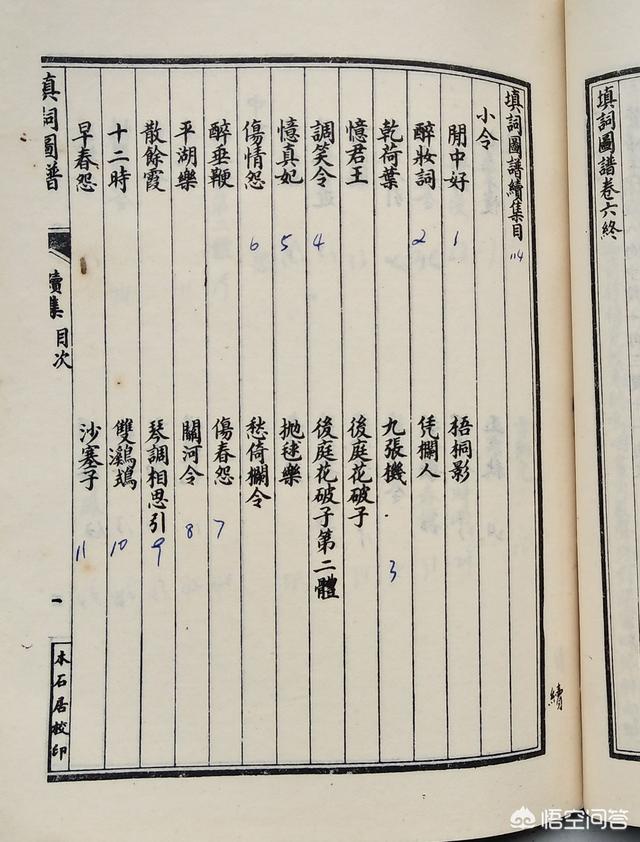 填詞圖譜卷六終
填詞圖譜續集目 114
小令
閒中好 1 梧桐影
醉妝詞 2 凭欄人
乾荷葉 九張機 3
憶君王 後庭花破子
調笑令 4 後庭花破子第二體
憶真妃 5 抛毬樂
傷情怨 6 愁倚欄令
醉垂鞭 傷春怨 7
平湖樂 關河令 8
散餘霞 琴調相思引 9
十二時 雙鸂鶒 10
早春怨 沙塞子 11
填詞圖譜 續集 目次 一 木石居校印
續
悟空问答